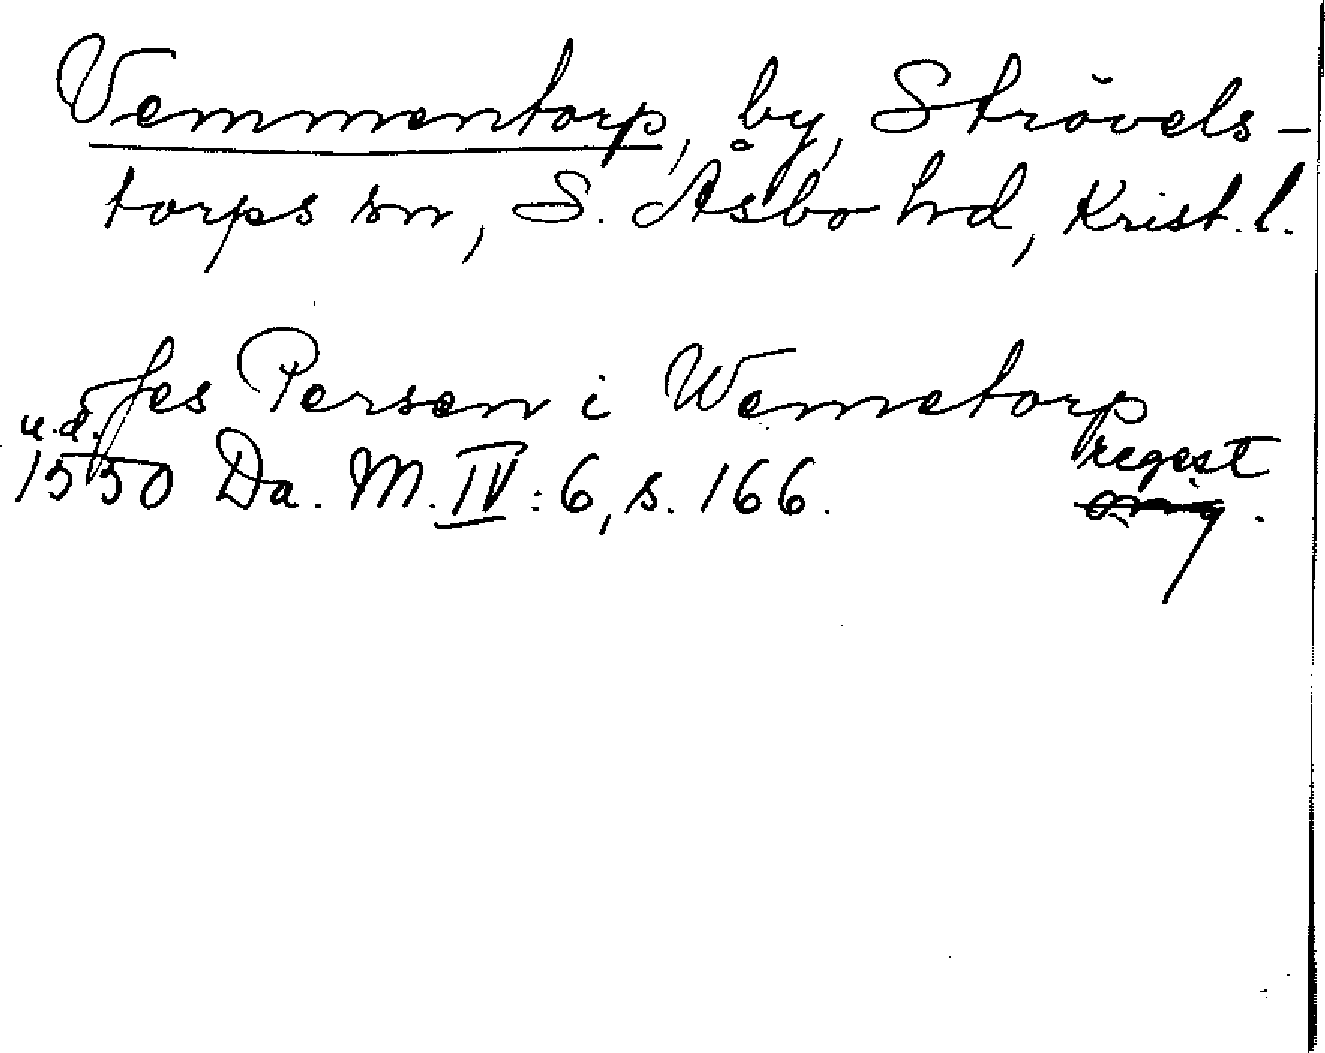 Vemmentorp, by, Strövels-
torps sn, S. Åsbo hd, Krist. l.
Jes Persen i Wemetorp
u.d.
1550 Da. M. IV: 6, s. 166. regest